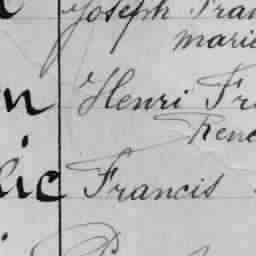 Joseph Fran
Marie
Henri Fr
René
lic Francis